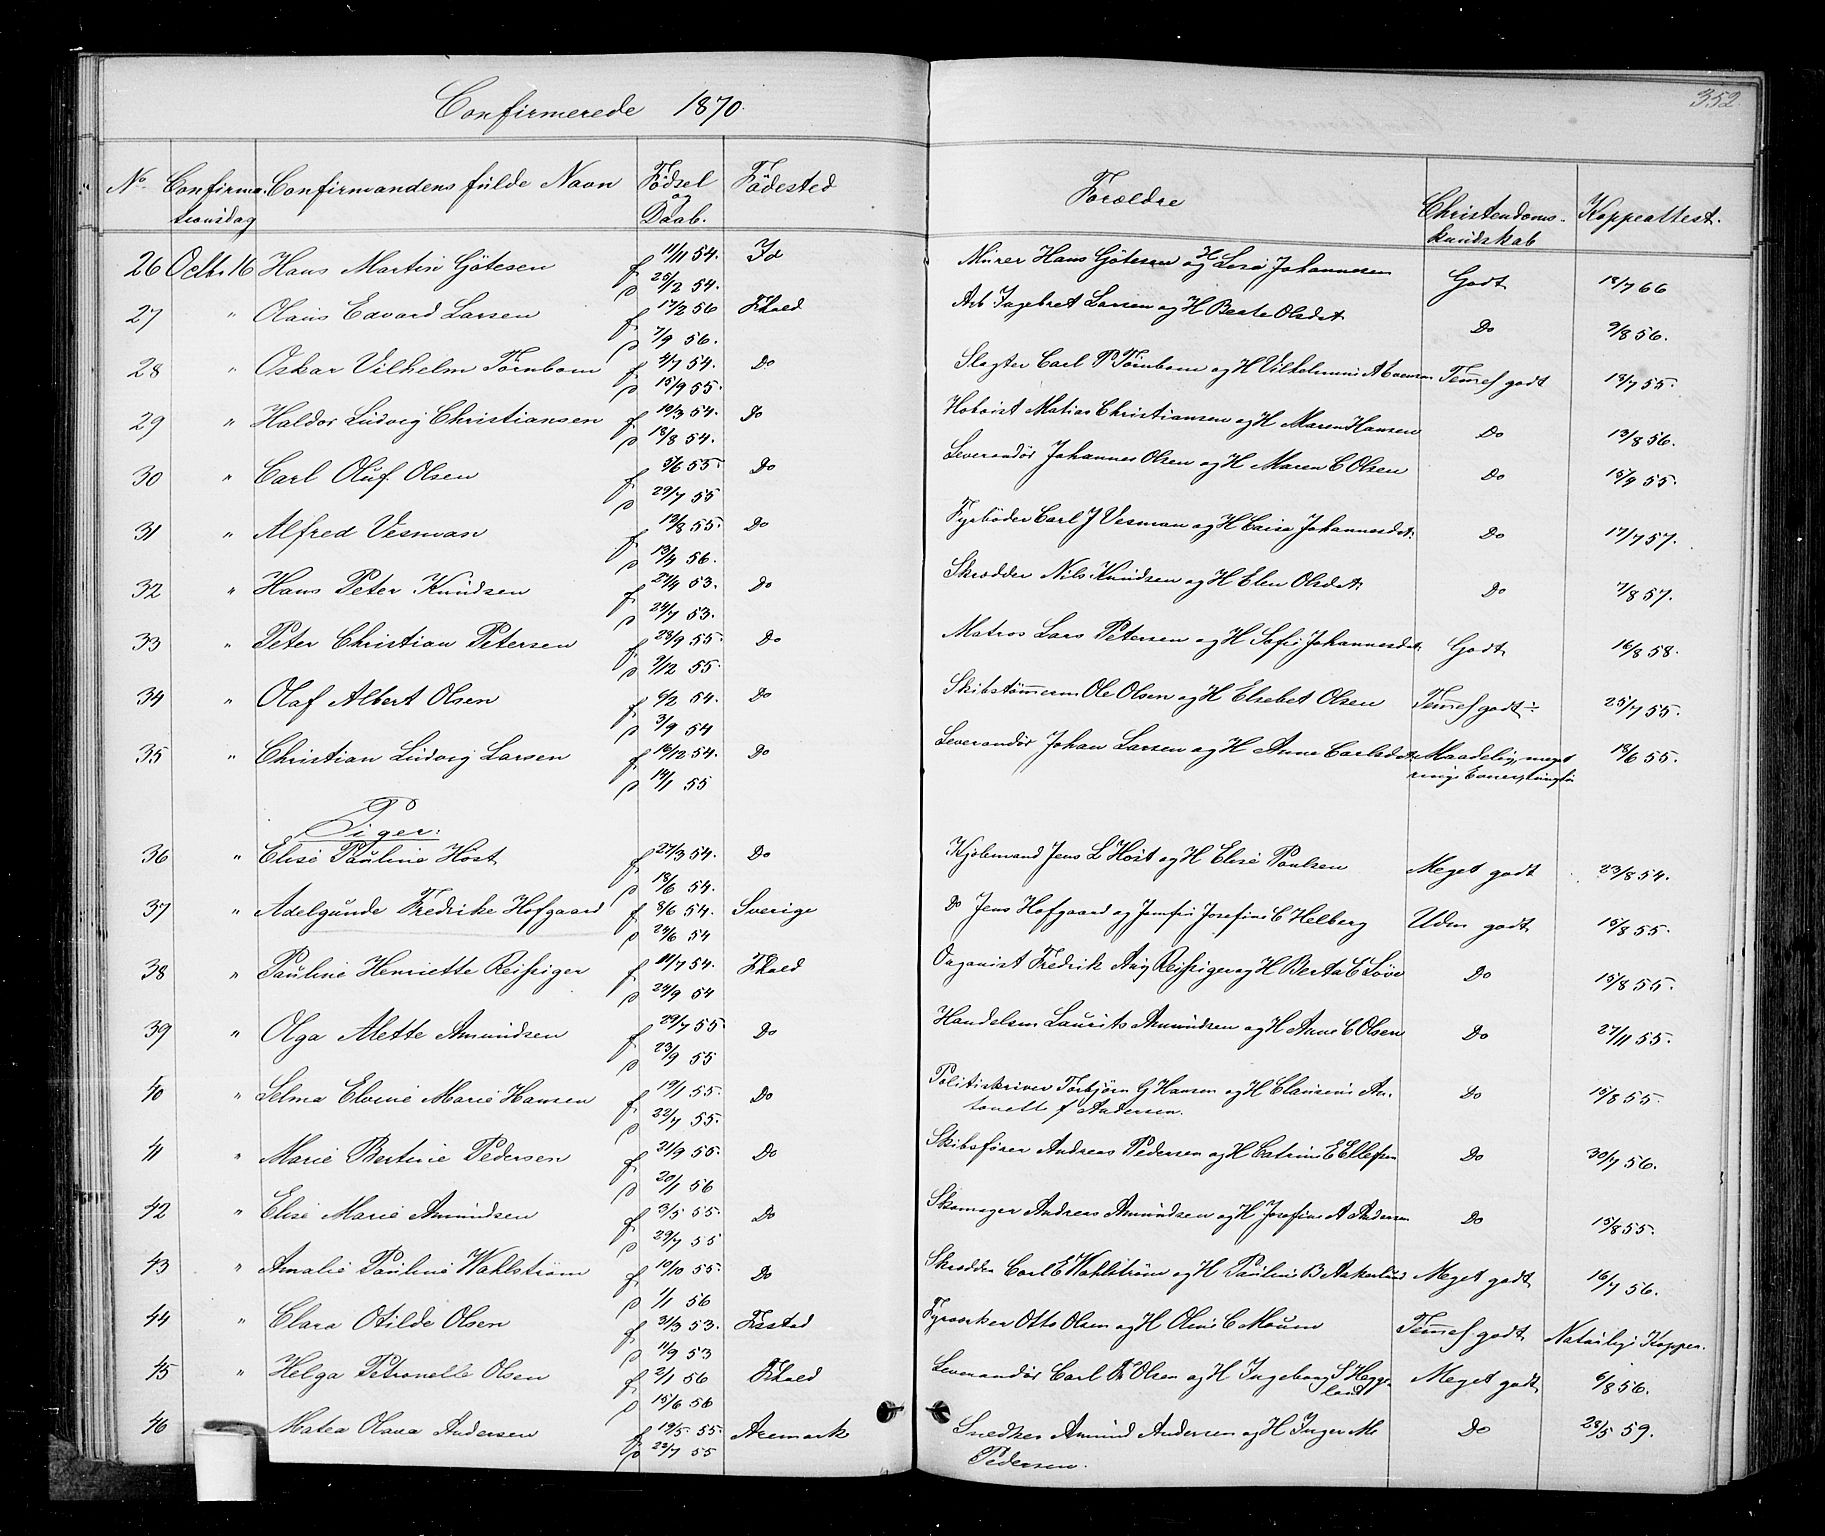 Confirmerede 1870.
352.
No. Confirma- Confirmandens fulde Navn Födsel Födested Forældre Christendoms- Koppeattest.
tionsdag og Daab. kundskab
26 Octbr. 16 Hans Martin Götesen f 11/11 54. Id Murer Hans Götesen og H Lise Johannesen Godt 18/7 66
d 25/2 54.
27 " Olaus Edvard Larsen f 17/2 56 Fhald Arb Ingebret Larsen og H Berte Olsdat. Do 9/8 56.
d 7/9 56.
28 " Oskar Vilhelm Törnbom f 4/7 54. Do Slagter Carl P Törnbom og H Vilhelmine Temml godt 18/7 55
d 15/9 55.
29 " Haldor Ludvig Christiansen f 10/3 54. Do Hoboist Matias Christiansen og H Maren Hansen Do 13/8 56.
d 18/8 54.
30 " Carl Oluf Olsen f 5/6 55 Do Leverandör Johannes Olsen og H Maren C Olsen Do 15/9 55.
d 29/7 55
31 " Alfred Vesman f 12/8 55. Do Fyrböder Carl J Vesman og H Caisa Johannesdat. Do 17/7 57.
d 13/4 56.
32 " Hans Peter Knudsen f 27/4 53. Do Skrædder Nils Knudsen og H Elen Olsdat. Do 7/8 57.
d 24/7 53.
33 " Peter Christian Petersen f 28/9 55. Do Matros Lars Petersen og H Sofie Johannesdat. Godt 16/8 58.
d 9/12 55.
34 " Olaf Albert Olsen f 6/2 54. Do Skibstömmerm Ole Olsen og H Elsebet Olsen Temml godt ÷ 25/7 55.
d 3/9 54
35 " Christian Ludvig Larsen f 16/12 54. Do Leverandör Johan Larsen og H Anne Carlsdat. Maadelig, meget 18/6 55.
d 14/1 55 ringe
Piger:
36 " Elise Pauline Höst f 27/3 54. Do Kjöbmand Jens L Höst og H Elise Paulsen Meget godt 23/8 54.
d 18/6 54.
37 " Adelgunde Fredrike Hofgaard f 8/6 54. Sverige Do Jens Hofgaard og Jomfru Josefine C Helberg Udm godt 15/8 55.
d 24/6 54
38 " Pauline Henriette Reissiger f 11/7 54. Fhald Organist Fredrik Aug Reissiger og H Berta C Löve Do 15/8 55.
d 24/9 54
39 " Olga Alette Amundsen f 29/7 55. Do Handelsm Laurits Amundsen og H Anne C Olsen Do 27/11 55.
d 23/9 55
40 " Selma Elvine Marie Hansen f 19/1 55. Do Politiskriver Torbjörn G Hansen og H Clausine An- Do 15/8 55.
d 22/7 55. tonette f Andersen.
41 " Marie Bertine Pedersen f 21/9 55. Do Skibsförer Andreas Pedersen og H Catrine E Ellefsen Do 30/7 56.
d 20/1 56
42 " Elise Marie Amundsen f 3/5 55. Do Skomager Andreas Amundsen og H Josefine A Andersen Do 15/8 55.
d 29/7 55
43 " Amalie Pauline Wahlström f 10/10 55. Do Skrædder Carl E Wahlström og H Pauline B Askerlund Meget godt 16/7 56.
d 1/1 56
44 " Clara Otilde Olsen f 31/3 53. Fsstad Fyrvorker Otto Olsen og H Oline C Moum Temml godt Naturlige Kopper.
d 11/9 53
45 " Helga Petronelle Olsen f 2/1 56 Fhald Leverandör Carl Olsen og H Ingeborg S Hegge- Meget godt 6/8 56.
d 15/6 56 land
46 Matea Olava Andersen f 19/5 55. Aremark Snedker Amund Andersen og H Inger M Do 28/5 59.
d 22/7 55 Pedersen.